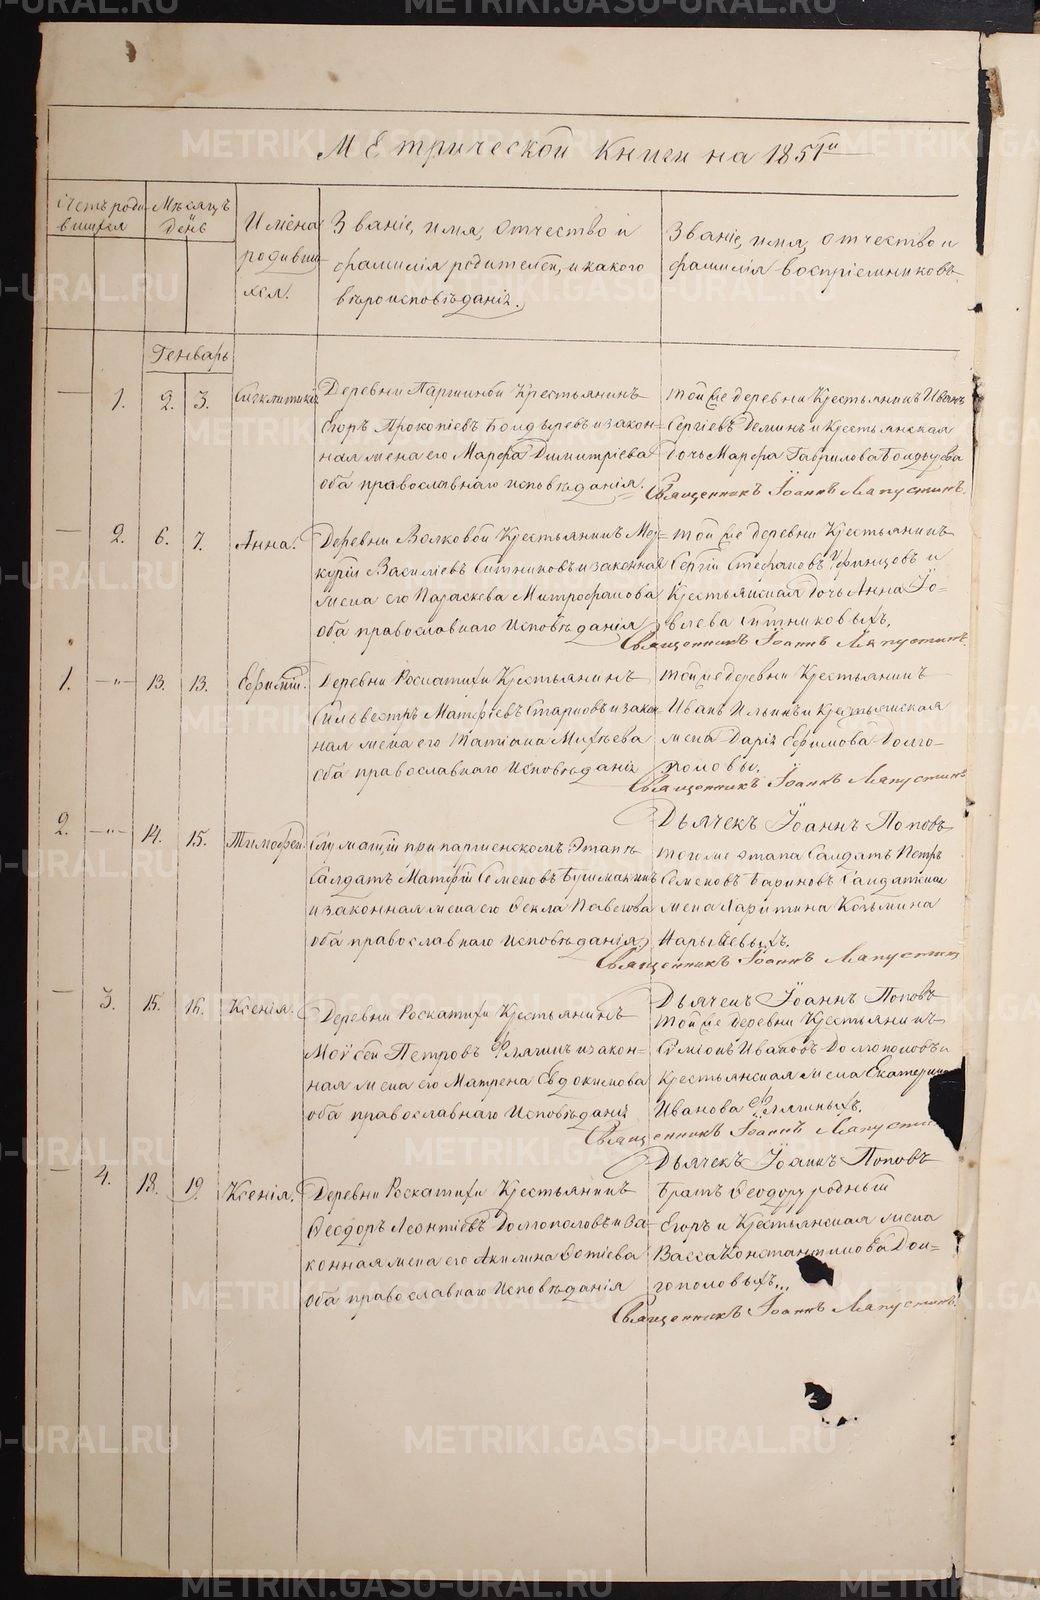 МЕтрической Книги на 1851й
Счетъ роди-
вшихся
Мѣсяцъ
и
день
Имена
родивши-
хся.
Званіе, имя, отчество и
фамилія родителей, и какого
вѣроисповѣданія.
Званіе, имя, отчество и
фамилія воспріемниковъ
Генварь
— 1. 2. 3. Сигклитикія
Деревни Паршиной Крестьянинъ
Егоръ Прокопіевъ Болдыревъ и закон-
ная жена его Марфа Димитріева
оба православнаго исповѣданія.
Той же деревни Крестьянинъ Иванъ
Сергіевъ Деминъ и Крестьянская
дочь Марфа Гаврилова Болдырева
Священникъ Іоаннъ Ляпустинъ.
— 2. 6. 7. Анна.
Деревни Волковой Крестьянинъ Мер-
курій Василіевъ Ситниковъ и законная
жена его Параскева Митрофанова
оба православнаго Исповѣданія
Той же деревни Крестьянинъ
Сергій Стефановъ Уфинцовъ и
Крестьянская дочь Анна Іо-
влева Ситниковыхъ.
Священникъ Іоаннъ Ляпустинъ.
1. —"— 13. 13. Ефимій.
Деревни Роскатихи Крестьянинъ
Сильвестръ Матфіевъ Старковъ и закон-
ная жена его Татіана Михѣева
оба православнаго Исповѣданія
Той же деревни Крестьянинъ
Иванъ Ильинъ и Крестьянская
жена Дарія Ефимова Долго-
половы.
Священникъ Іоаннъ Ляпустинъ
Дьячекъ Іоаннъ Поповъ
2. —"— 14. 15. Тимофей.
Служащій при
Солдатъ Матфій Семеновъ
и законная жена его Фекла Павлова
оба православнаго Исповѣданія
Того же этапа Солдатъ Петръ
Семеновъ Бариновъ Солдатская
жена Харитина Козьмина
Священникъ Іоаннъ Ляпустинъ
Дьячекъ Іоаннъ Поповъ
— 3. 15. 16. Ксенія.
Деревни Роскатихи Крестьянинъ
Моѵсей Петровъ и закон-
ная жена его Матрена Евдокимова
оба православнаго Исповѣданія
Той же деревни Крестьянинъ
Симіонъ Ивановъ Долгополовъ и
Крестьянская жена
Иванова
Священникъ Іоаннъ
Дьячекъ Іоаннъ Поповъ
— 4. 18. 19. Ксенія.
Деревни Роскатихи Крестьянинъ
Ѳеодоръ Леонтіевъ Долгополовъ и за-
конная жена его Акилина Фотіева
оба православнаго Исповѣданія
Братъ Ѳеодору родный
Егоръ и Крестьянская жена
Васса Константинова Дол-
гополовыхъ...
Священникъ Іоаннъ Ляпустинъ.
METRIKI.GASO-URAL.RU